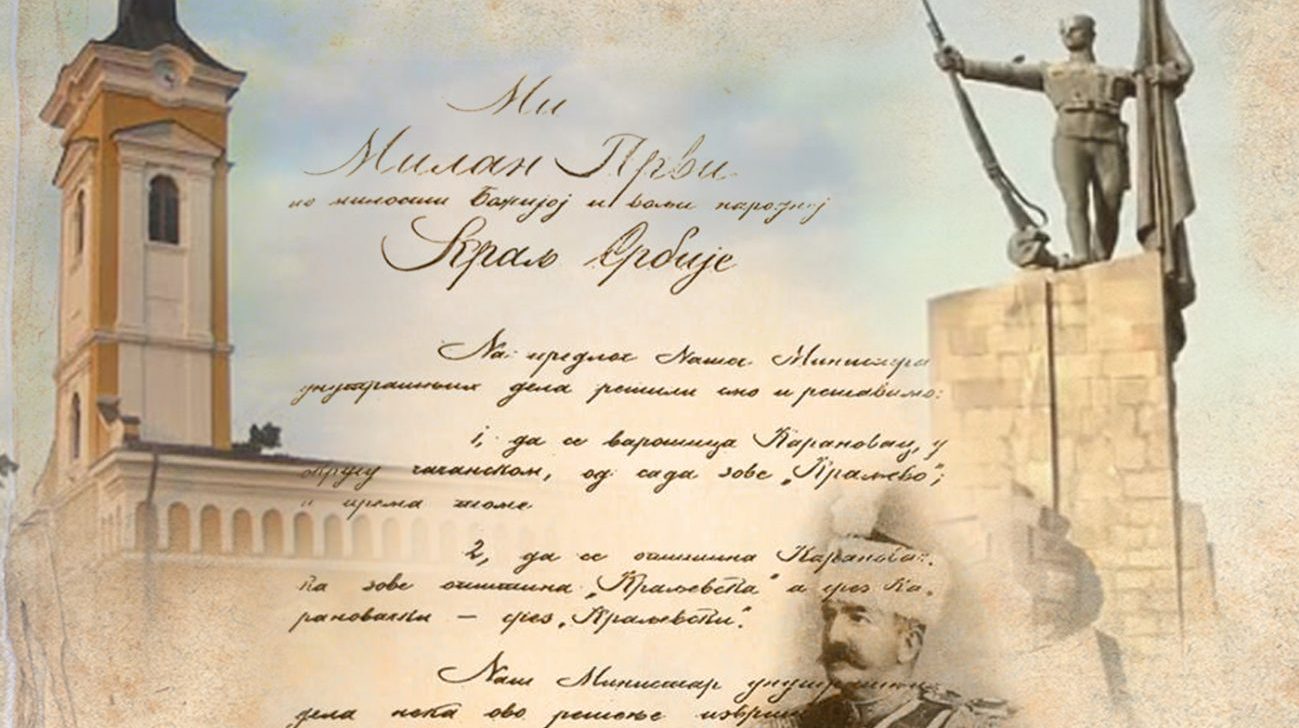 Ми
Милан Први
по милости Божијој и вољи народној
Краљ Србије
На предлог Нашег Министра
унутрашњих дела решили смо и решавамо:
1, да се варошица Карановац, у
округу чачанском, од сада зове „Краљево“;
и према томе
2, да се општина Карановач-
ка зове општина „Краљевска“ а срез Ка-
рановачки — срез „Краљевски“.
Наш Министар унутрашњих
дела нека ово решење изврши